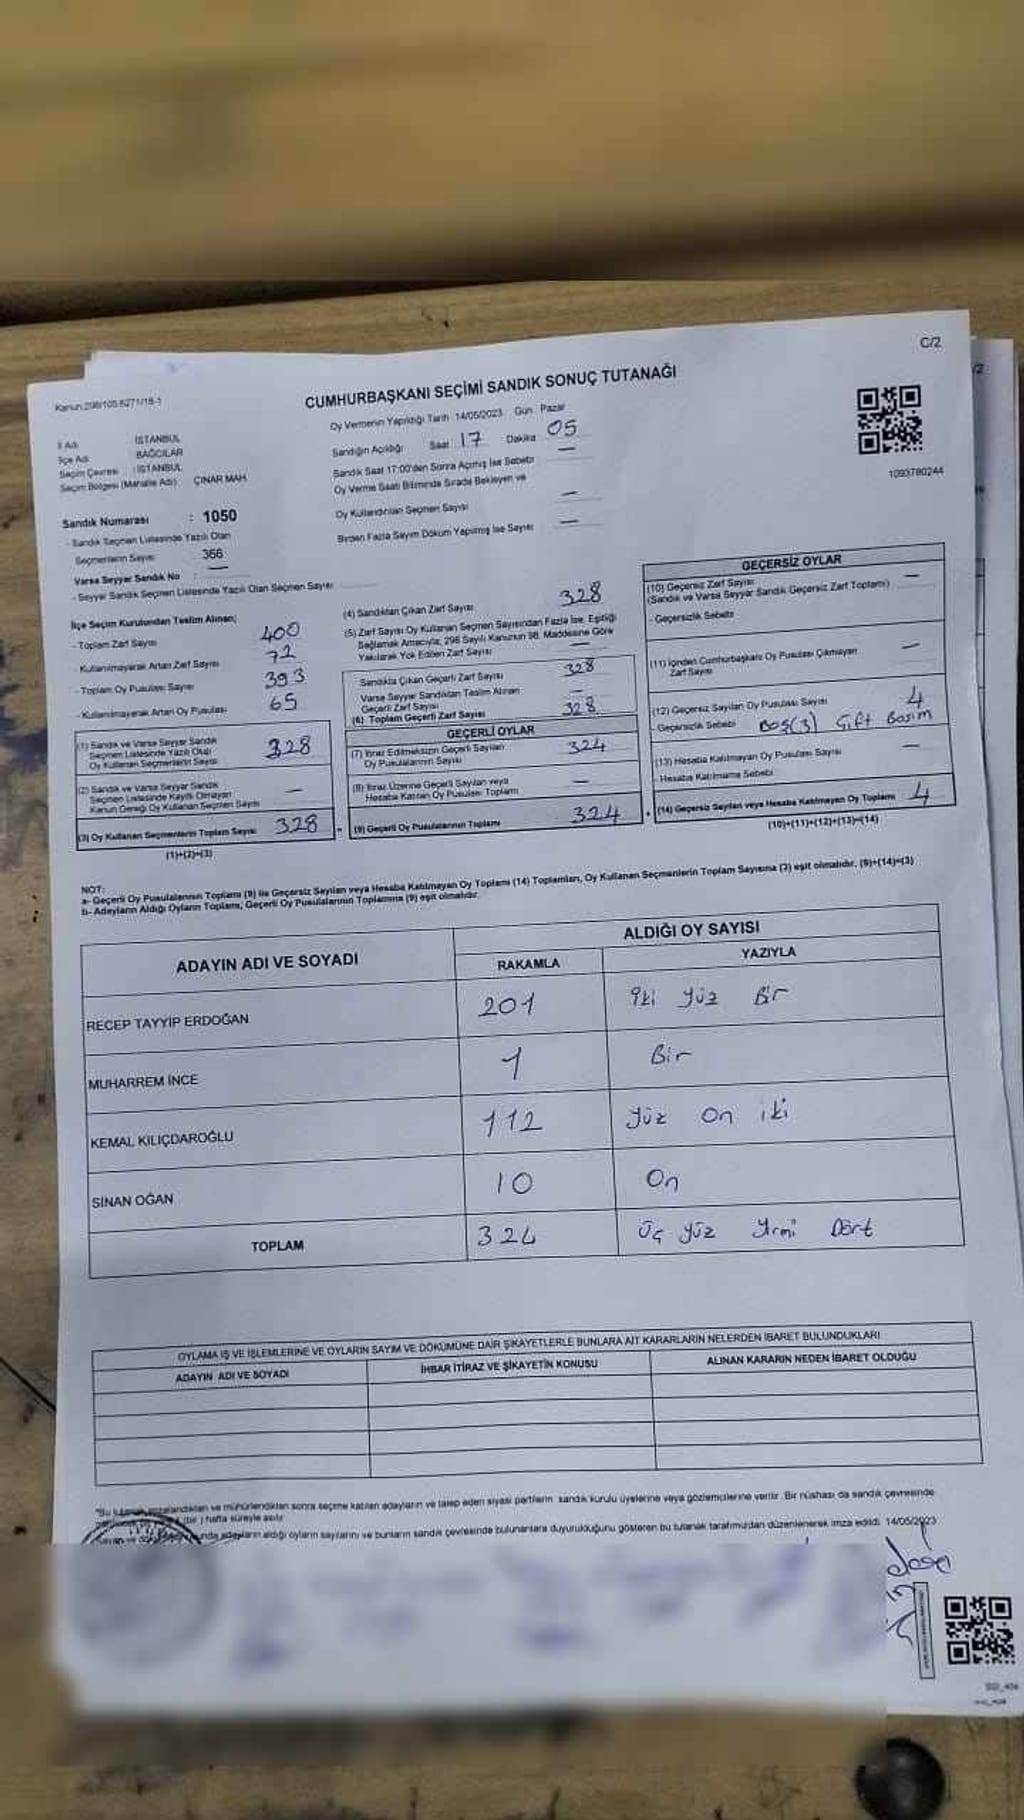 C/2
CUMHURBAŞKANI SEÇİMİ SANDIK SONUÇ TUTANAĞI
Oy Vermenin Yapıldığı Tarih 14/05/2023 Gün Pazar
İl Adı İSTANBUL
İlçe Adı BAĞCILAR
Seçim Çevresi : İSTANBUL
Seçim Bölgesi (Mahalle Adı) ÇINAR MAH.
Sandığın Açıldığı Saat 17 Dakika 05
Sandık Saat 17:00'den Sonra Açılmış İse Sebebi —
Oy Verme Saati Bitiminde Sırada Bekleyen ve
Oy Kullandırılan Seçmen Sayısı —
Birden Fazla Sayım Döküm Yapılmış İse Sayısı —
1093780244
Sandık Numarası : 1050
- Sandık Seçmen Listesinde Yazılı Olan
Seçmenlerin Sayısı 366
Varsa Seyyar Sandık No : —
- Seyyar Sandık Seçmen Listesinde Yazılı Olan Seçmen Sayısı
İlçe Seçim Kurulundan Teslim Alınan;
- Toplam Zarf Sayısı 400
- Kullanılmayarak Artan Zarf Sayısı 72
- Toplam Oy Pusulası Sayısı 393
- Kullanılmayarak Artan Oy Pusulası 65
(1) Sandık ve Varsa Seyyar Sandık
Seçmen Listesinde Yazılı Olup
Oy Kullanan Seçmenlerin Sayısı 328
(2) Sandık ve Varsa Seyyar Sandık
Seçmen Listesinde Kayıtlı Olmayan
Kanun Gereği Oy Kullanan Seçmen Sayısı —
(3) Oy Kullanan Seçmenlerin Toplam Sayısı 328
(1)+(2)=(3)
(4) Sandıktan Çıkan Zarf Sayısı 328
(5) Zarf Sayısı Oy Kullanan Seçmen Sayısından Fazla İse, Eşitliği
Sağlamak Amacıyla, 298 Sayılı Kanunun 98. Maddesine Göre
Yakılarak Yok Edilen Zarf Sayısı —
Sandıkta Çıkan Geçerli Zarf Sayısı 328
Varsa Seyyar Sandıktan Teslim Alınan
Geçerli Zarf Sayısı —
(6) Toplam Geçerli Zarf Sayısı 328
GEÇERLİ OYLAR
(7) İtiraz Edilmeksizin Geçerli Sayılan
Oy Pusulalarının Sayısı 324
(8) İtiraz Üzerine Geçerli Sayılan veya
Hesaba Katılan Oy Pusulası Toplamı —
(9) Geçerli Oy Pusulalarının Toplamı 324
GEÇERSİZ OYLAR
(10) Geçersiz Zarf Sayısı
(Sandık ve Varsa Seyyar Sandık Geçersiz Zarf Toplamı) —
- Geçersizlik Sebebi
(11) İçinden Cumhurbaşkanı Oy Pusulası Çıkmayan
Zarf Sayısı —
(12) Geçersiz Sayılan Oy Pusulası Sayısı 4
- Geçersizlik Sebebi Boş(3) Çift Basım
(13) Hesaba Katılmayan Oy Pusulası Sayısı —
- Hesaba Katılmama Sebebi
(14) Geçersiz Sayılan veya Hesaba Katılmayan Oy Toplamı 4
(10)+(11)+(12)+(13)=(14)
NOT:
a- Geçerli Oy Pusulalarının Toplamı (9) ile Geçersiz Sayılan veya Hesaba Katılmayan Oy Toplamı (14) Toplamları, Oy Kullanan Seçmenlerin Toplam Sayısına (3) eşit olmalıdır. (9)+(14)=(3)
b- Adayların Aldığı Oyların Toplamı, Geçerli Oy Pusulalarının Toplamına (9) eşit olmalıdır.
ADAYIN ADI VE SOYADI ALDIĞI OY SAYISI
RAKAMLA YAZIYLA
RECEP TAYYİP ERDOĞAN 201 İki yüz Bir
MUHARREM İNCE 1 Bir
KEMAL KILIÇDAROĞLU 112 Yüz On iki
SİNAN OĞAN 10 On
TOPLAM 324 Üç yüz Yirmi Dört
OYLAMA İŞ VE İŞLEMLERİNE VE OYLARIN SAYIM VE DÖKÜMÜNE DAİR ŞİKAYETLERLE BUNLARA AİT KARARLARIN NELERDEN İBARET BULUNDUKLARI
ADAYIN ADI VE SOYADI İHBAR İTİRAZ VE ŞİKAYETİN KONUSU ALINAN KARARIN NEDEN İBARET OLDUĞU
ve mühürlendikten sonra seçime katılan adayların ve talep eden siyasi partilerin sandık kurulu üyelerine veya gözlemcilerine verilir. Bir nüshası da sandık çevresinde
hafta süreyle asılır.
adayların aldığı oyların sayılarını ve bunların sandık çevresinde bulunanlara duyurulduğunu gösteren bu tutanak tarafımızdan düzenlenerek imza edildi. 14/05/2023